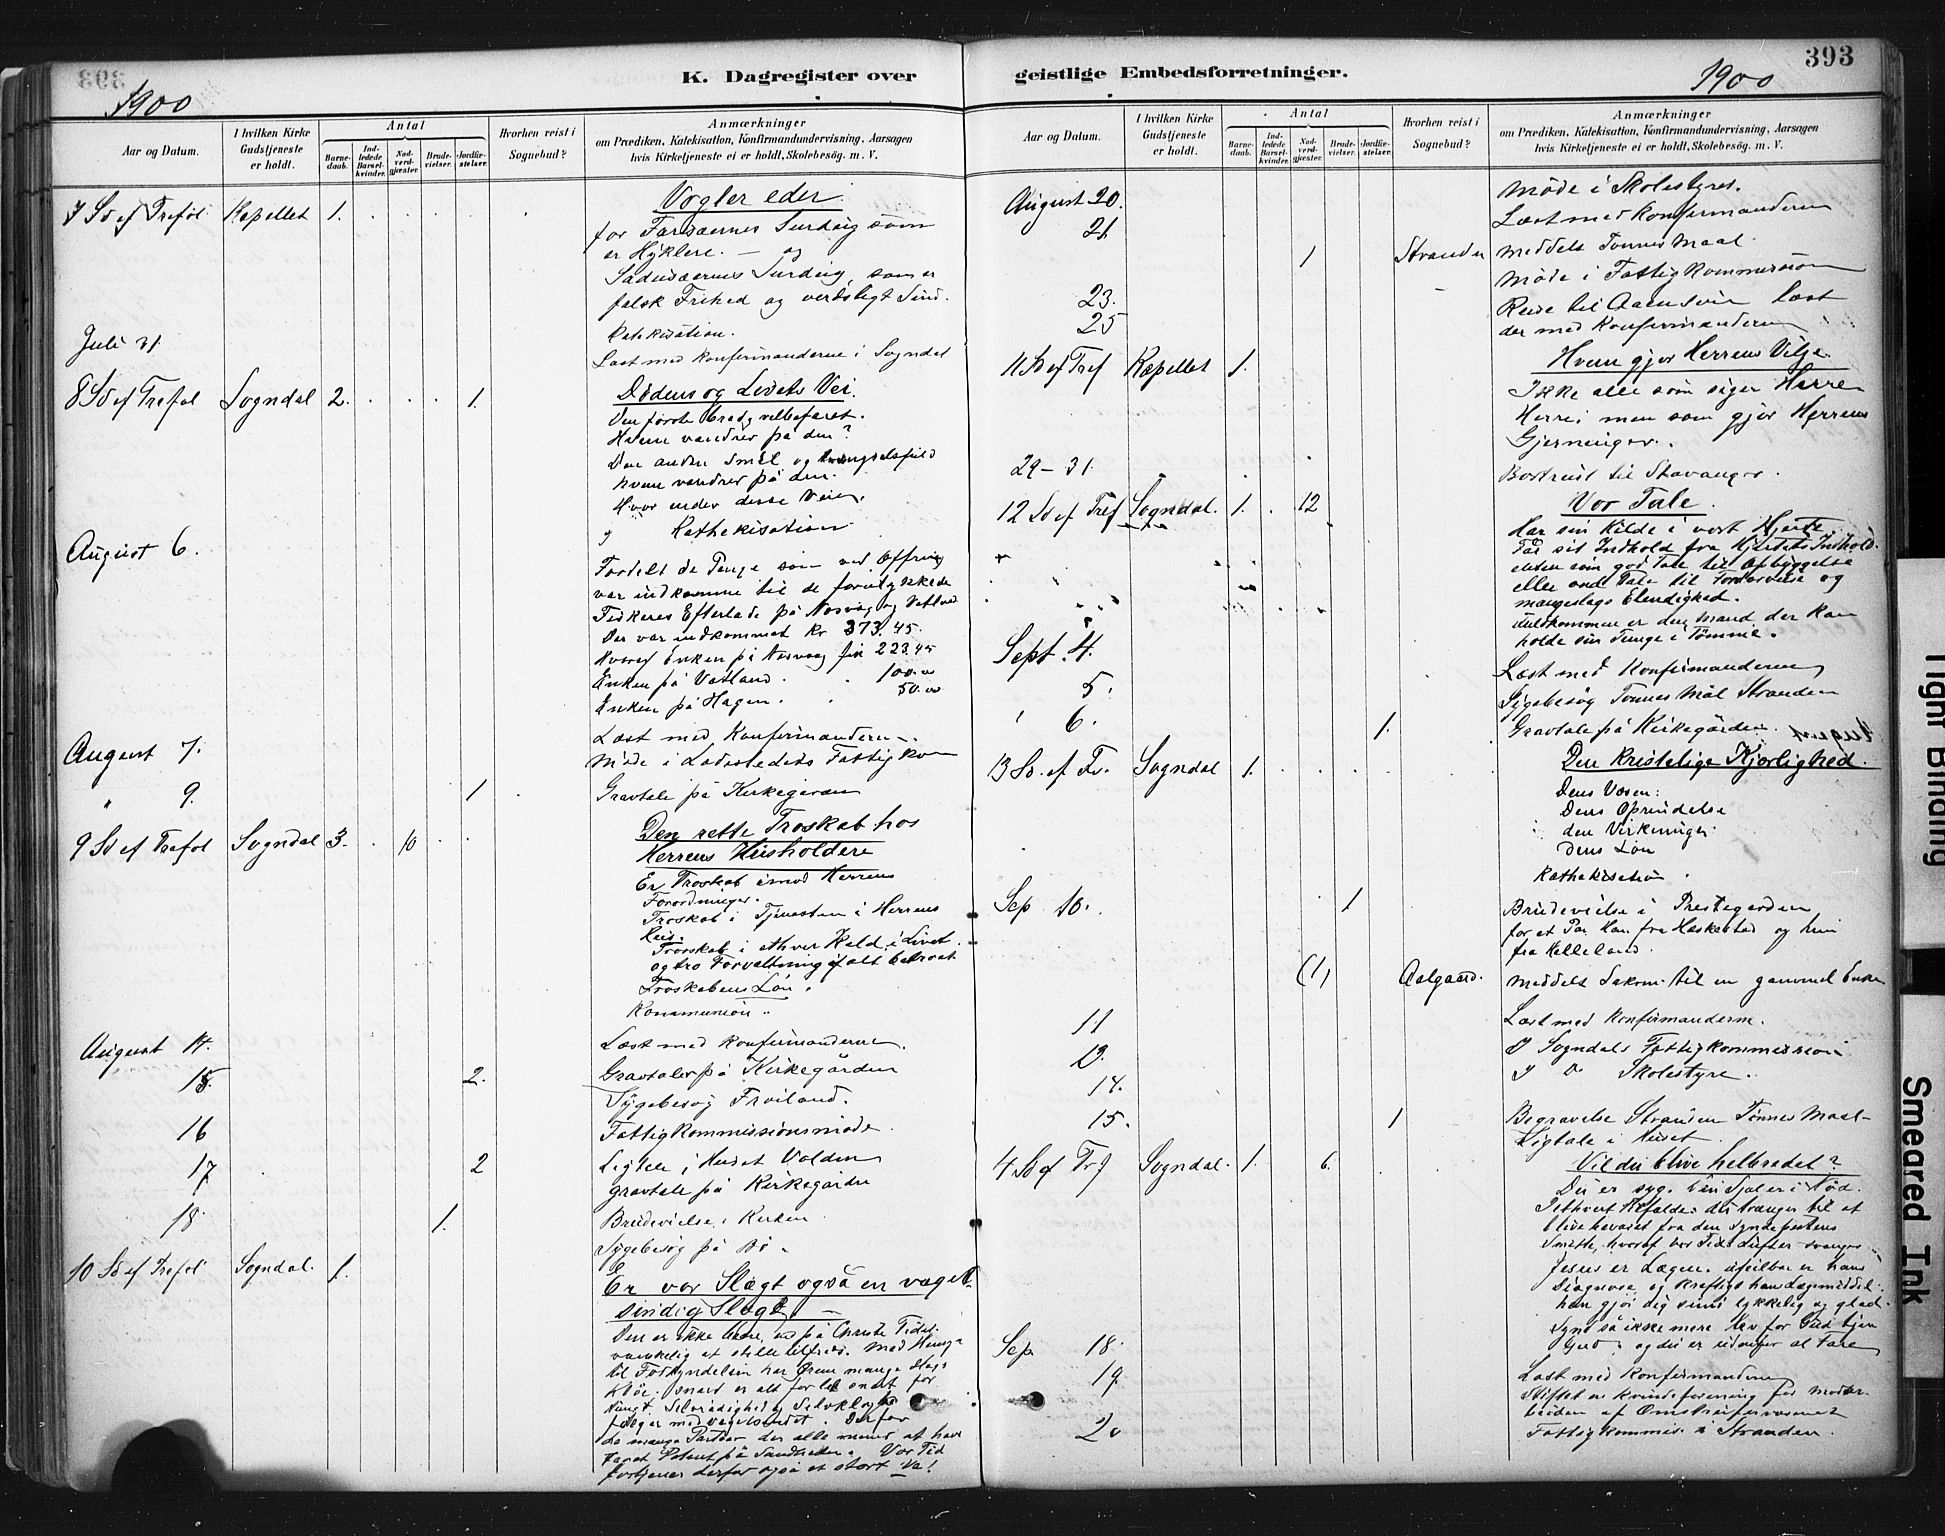 393
K. Dagregister over geistlige Embedsforretninger.
1900
1900
Aar og Datum.
I hvilken Kirke Gudstjeneste er holdt.
Antal
Barnedaab.
Indledede Barselkvinder.
Nadverdgjester.
Brudevielser.
Jordfæstelser.
Hvorhen reist i Sognebud?
Anmærkninger
om Prædiken, Katekisation, Konfirmandundervisning, Aarsagen
hvis Kirketjeneste ei er holdt, Skolebesøg. m. V.
7 Sd ef Trefol Kapellet 1.
Vogter eder
for Farisæernes Surdeig som
er Hyklere. — og
Saducæernes Surdeig, som er
falsk Frihed og verdsligt Sind.
Katekisation.
Juli 31
Læst med Konfirmanderne i Sogndal
8 Sd ef Trefol Sogndal 2. 1.
Dödens og Livets Vei.
Den förste bred, velbefaret.
Hvem vandrer på den?
Den anden Smal og trængselsfuld
hvem vandrer på den.
Hvor ender disse Veie.
Kathekisation
August 6.
Fordelt de Penge som ved Offring
var indkomne til de forulykkede
Fiskeres Efterladte på Nesvåg og Vatland
Der var indkommet Kr 373.45.
Hvoraf Enken på Nesvaag fik 223.45
Enken på Vatland. 100.00
Enken på Hagen. 50.00
August 7.
Læst med Konfirmanderne.
Möde i Ladestedets Fattigkom
" 9. 1
Gravtale på Kirkegården
9 Sd ef Trefol Sogndal 3. 10
Den rette Troskab hos
Herrens Husholdere
Er Troskab imod Herrens
Forordninger.
Troskab i Tjenesten i Herrens
Hus.
Troskab i ethvert Kald i Livet.
og tro Forvaltning af alt betroet
Troskabens Lön.
Kommunion.
August 14.
Læst med Konfirmanderne.
15. 2.
Gravtaler på Kirkegården
Sygebesög Fröiland.
16
Fattigkommissionsmöde.
17. 2
Ligtale i Huset Volden
gravtale på Kirkegården
18. 1.
Brudevielse i Kirken
Sygebesög på Bö.
10 Sd ef Trefol Sogndal. 1.
Er vor Slægt også en vægel-
sindig Slægt. —
Den er ikke bedre, end på Christi Tider.
vanskelig at stille tilfreds.
fölger med vægelsindet. Derfor
så mange Partier der alle mener at have
taget Patent på Sandheden. Vor Tid
fortjener derfor også et stort Ve!
Aar og Datum.
I hvilken Kirke Gudstjeneste er holdt.
Antal
Barnedaab.
Indledede Barselkvinder.
Nadverdgjester.
Brudevielser.
Jordfæstelser.
Hvorhen reist i Sognebud?
Anmærkninger
om Prædiken, Katekisation, Konfirmandundervisning, Aarsagen
hvis Kirketjeneste ei er holdt, Skolebesøg. m. V.
August 20.
Möde i Skolestyret.
21
Læst med Konfirmanderne
1 Stranden
meddelt Tönnes Maal.
Möde i Fattigkommission
23.
Reise til Aaensire Læst
25
der med Konfirmanderne
11 Sd ef Tref Kapellet 1.
Hvem gjör Herrens Vilje.
Ikke alle som siger Herre
Herre; men som gjör Herrens
Gjerninger.
29-31.
Bortreist til Stavanger.
12 Sd ef Tref Sogndal. 1. 12
Vor Tale.
Har sin Kilde i vort Hjerte
Får sit Indhold fra Hjertets Indhold.
enten som god Tale til Opbyggelse
eller ond Tale til Fordærvelse og
mangeslags Elendighed.
Fuldkommen er den Mand, der kan
holde sin Tunge i Tömme.
Sept. 4.
Læst med Konfirmanderne
5.
Sygebesög Tönnes Mål Stranden
6. 1.
Gravtale på Kirkegården.
13 Sd. ef Tr. Sogndal 1.
Den kristelige Kjærlighed.
Dens Væsen:
Dens Oprindelse
den Virkninger.
dens Lön
Kathekisation.
Sep 10. 1
Brudevielse i Prestegården
for et Par Han fra Heskestad og hun
fra Helleland.
(1) Aalgaard.
Meddelt Sakram. til en gammel Enke
11
Læst med Konfirmanderne.
12.
I Sogndals Fattigkommission
14.
I Do Skolestyre.
15. 1
Begravelse Stranden Tönnes Maal
Ligtale i Huset
4 Sd ef Trf Sogndal. 1. 6.
Vil du blive helbredet?
Du er syg. Din Sjæl er i Nöd.
I ethvert Tilfælde du trænger til at
blive bevaret fra den Syndepestens
Smitte, hvoraf vor Tids Lufter svanger
Jesus er Lægen. ufeilbar er hans
Diagnose og kraftigt hans Lægemiddel.
han gjör dig sund lykkelig og glad.
Synd så ikke mere Lev for Gud tjen
Gud. og du er udenfor al Fare
Sep. 18.
Læst med Konfirmanderne
19.
Stiftet en Kvindeforening for Modar-
beiden af Omstreifervæsenet
20
Fattigkommis. i Stranden.
Tight Binding
Smeared Ink